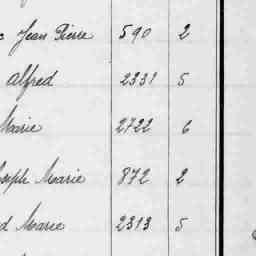 Jean Pierre 590 2
Alfred 2331 5
Marie 2722 6
Joseph Marie 872 2
Marie 2313 5